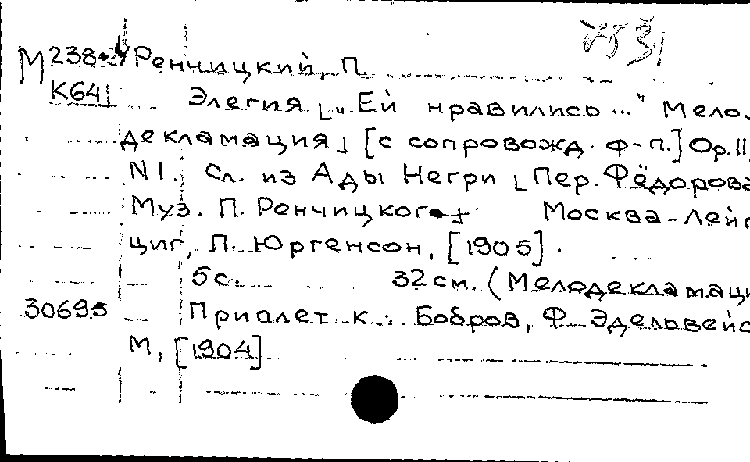 М 238 Ренчицкий, П.
К641 Элегия „Ей нравились..." Мело-
декламация [с сопровожд. ф-п.] Op. 11
N 1. Сл. из Ады Негри Пер. Фёдорова
Муз. П. Ренчицкого Москва-Лейп
циг, П. Юргенсон, [1905].
5 с. 32 см. (Мелодекламаци
30695 Приплет к: Бобров, Ф. Эдельвейс
М, [1904]